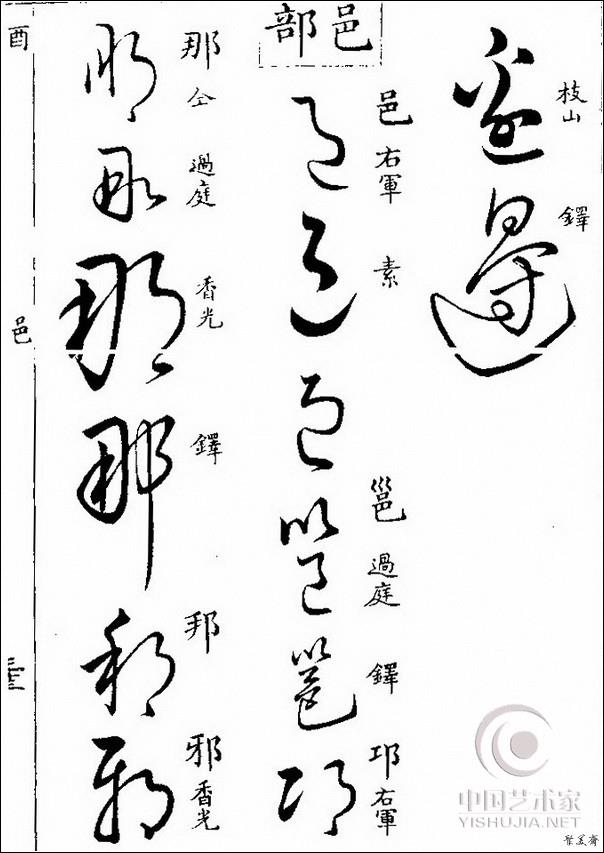 枝山
鐸
邑部
邑 右軍
素
邕 過庭
鐸
邛 右軍
那 仝
過庭
香光
鐸
邦
邪 香光
酉
邑
中国艺术家
YISHUJIA.NET